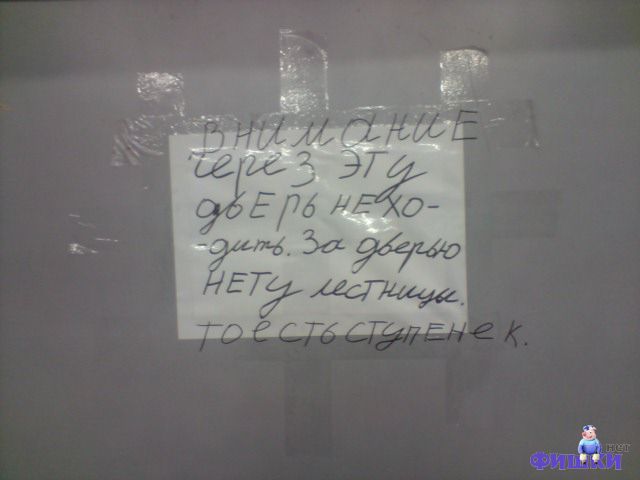 ВНИМАНИЕ
через ЭТУ
дВЕРЬ НЕ ХО-
-дить. За дверью
НЕТУ лестницы.
ТО ЕСТЬ СТУПЕНЕК.
нет
ФИШКИ